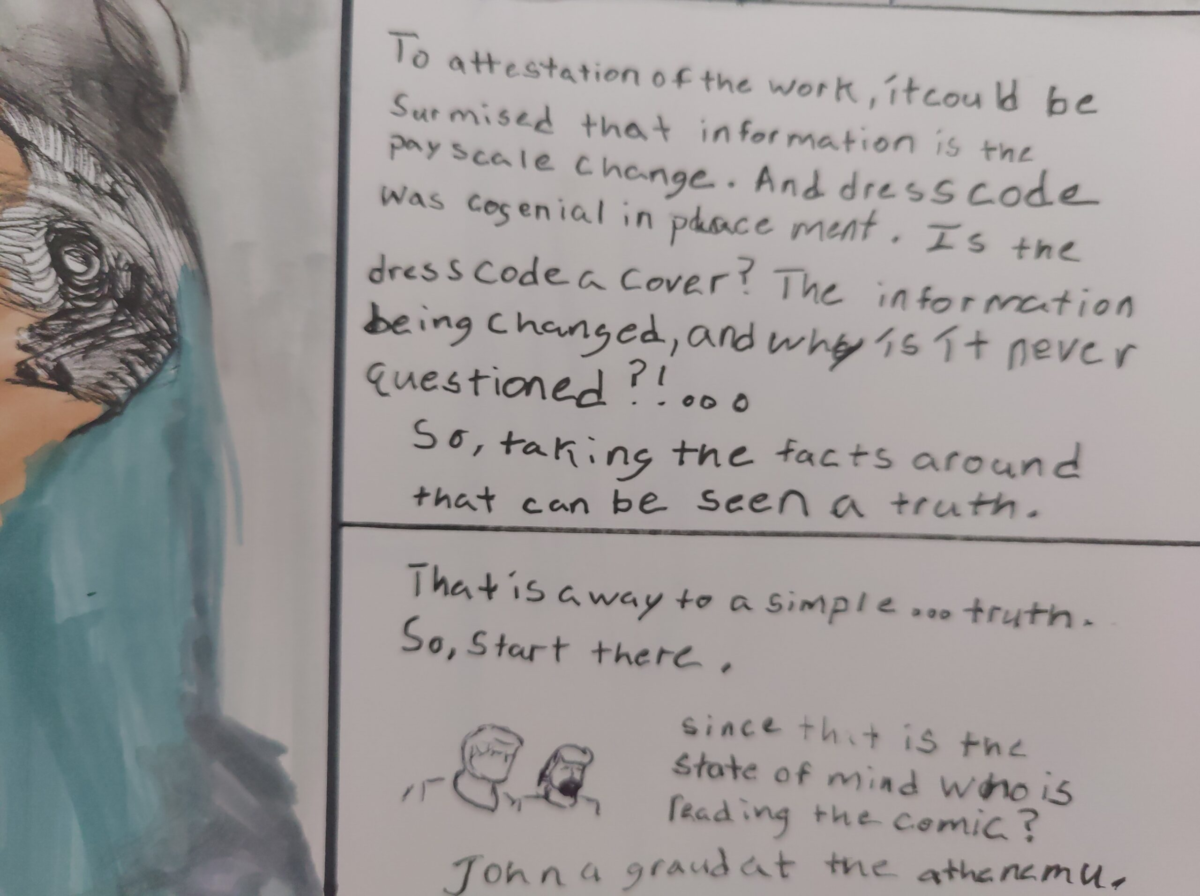 To attestation of the work, it could be
Surmised that information is the
payscale change. And dresscode
was cogenial in placement. Is the
dresscode a cover? The information
being changed, and why is it never
questioned?!...
So, taking the facts around
that can be seen a truth.
That is a way to a simple... truth.
So, Start there.
since that is the
state of mind who is
reading the comic?
John a graud at the athenamu.